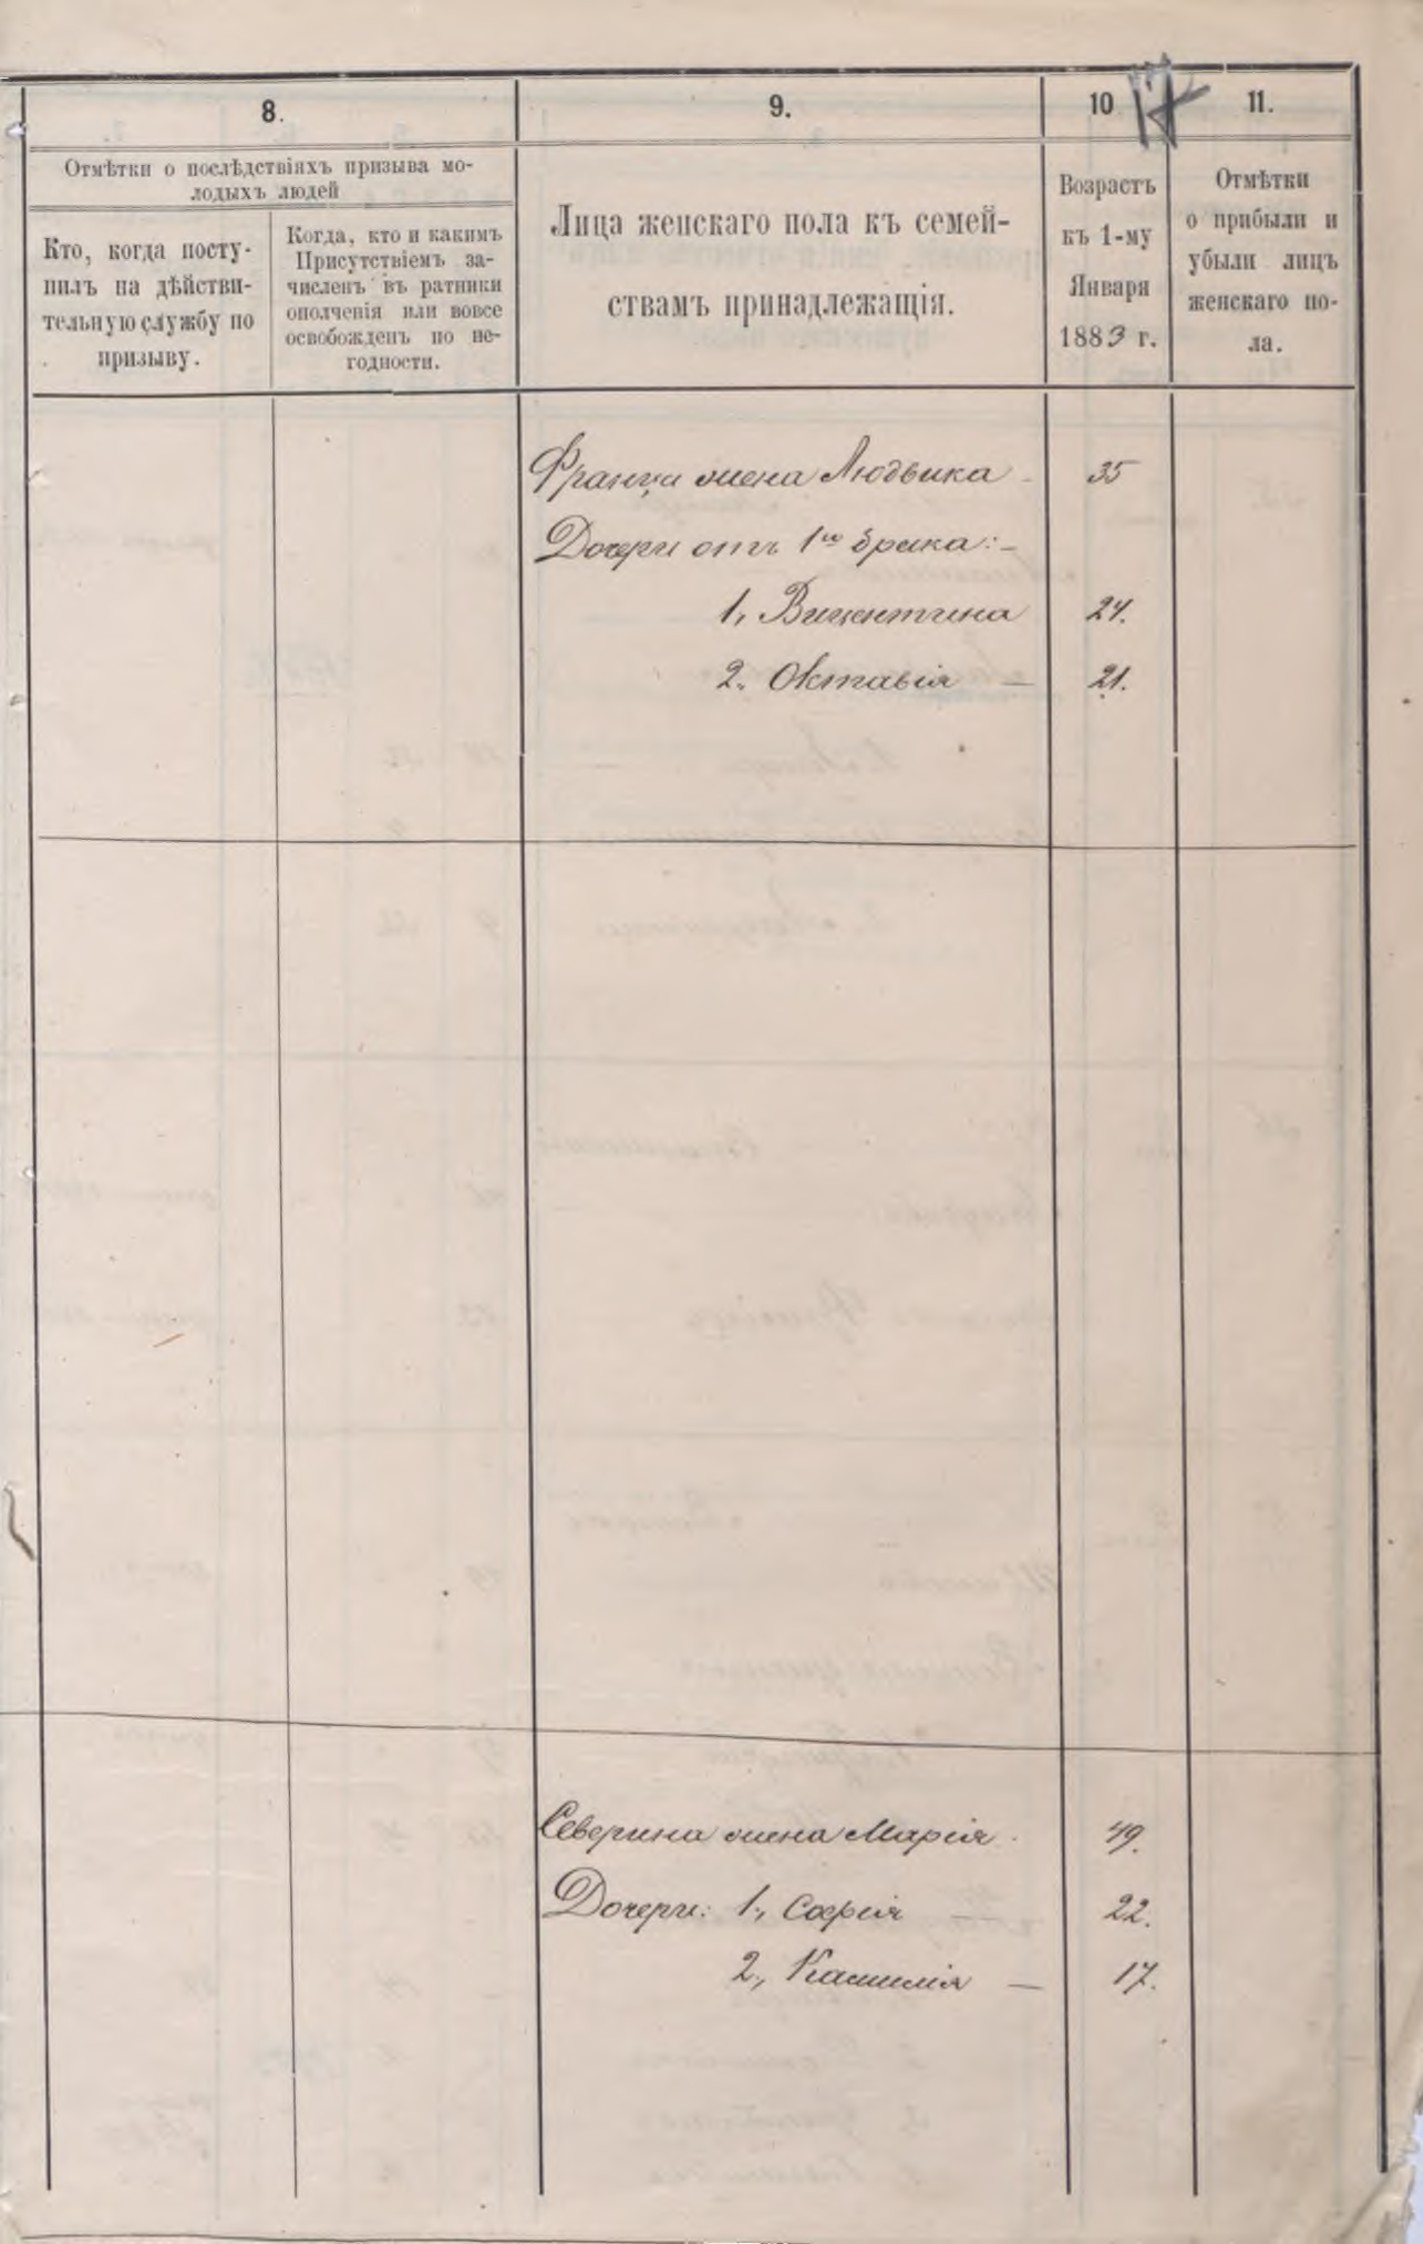 8.
9.
10
11.
Отмѣтки о послѣдствіяхъ призыва мо-
лодыхъ людей
Кто, когда посту-
пилъ на дѣйстви-
тельную службу по
призыву.
Когда, кто и какимъ
Присутствіемъ за-
численъ въ ратники
ополченія или вовсе
освобожденъ по не-
годности.
Лица женскаго пола къ семей-
ствамъ принадлежащія.
Возрастъ
къ 1-му
Января
1883 г.
Отмѣтки
о прибыли и
убыли лицъ
женскаго по-
ла.
Франца жена Людвика 35
Дочери отъ 1го брака:
1, Вицентина 24.
2. Октавія — 21.
Северина жена Марія 49.
Дочери: 1, Софія — 22.
2, Камилія — 17.